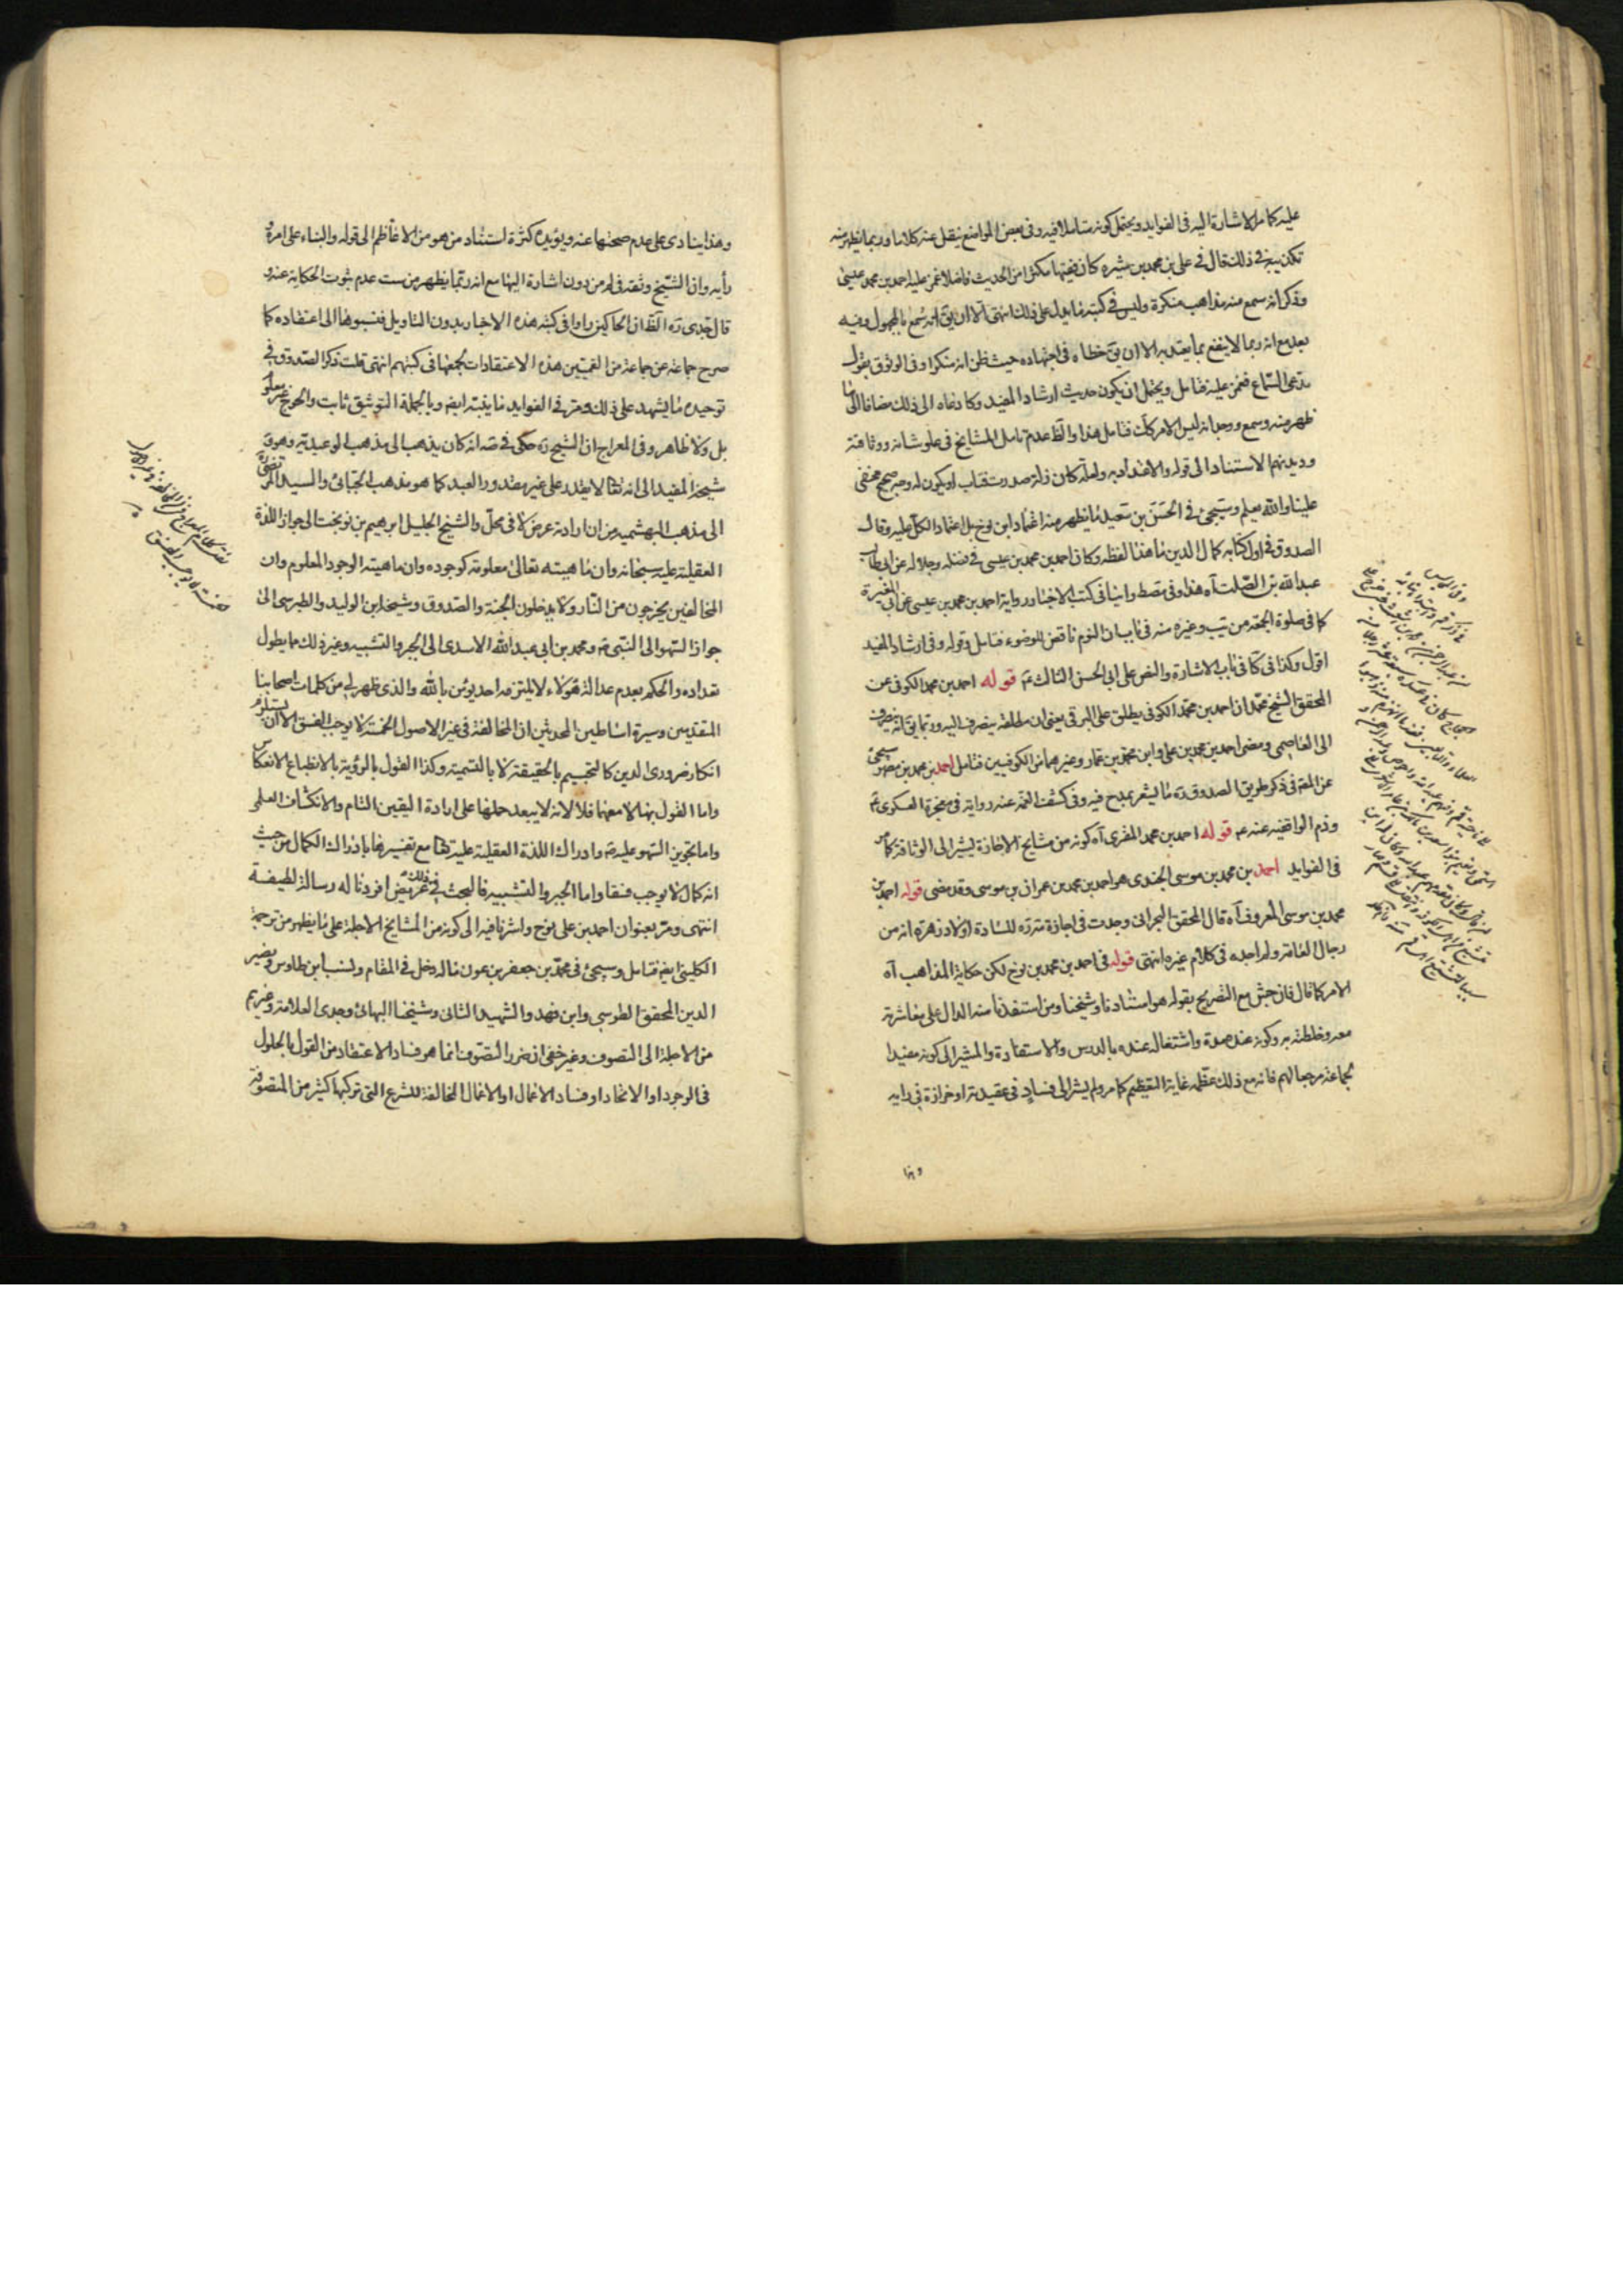 عليه كما مر الاشارة اليه فى الفوايد ويحتمل كونه متاملا فيه وفى بعض المواضع ينقل عنه كلاما وربما يظهر منه
تكذيبه فى ذلك قال فى على بن محمد بن شيره كان فقيها مكثرا من الحديث فاضلا غمز عليه احمد بن محمد بن عيسى
وذكر انه سمع منه مذاهب منكرة وليس فى كتبه ما يدل على ذلك انتهى الا ان يق انه سمع بالمجهول وفيه
بعد مع انه ربما لا ينفع بما يعتد به الا ان يق خطاه فى اجتهاده حيث ظن انه منكرا وفى الوثوق بقول
مدعى السماع فغمز عليه فتامل ويحتمل ان يكون حديث ارشاد المفيد وكا دعاه الى ذلك مضافا الى ما
ظهر منه وسمع ووجد انه ليس الامر كك فتامل هذا والظ عدم تامل المشايخ فى علو شانه ووثاقته
وديدنهم الاستناد الى قوله والاعتداد به ولعله كان زلة صدرت فتاب او يكون له وجه صحيح مخفى
علينا والله يعلم وسيجئ فى الحسن بن سعيد ما يظهر منه اعتماد ابن نوح بل اعتماد الكل عليه وقال
الصدوق فى اول كتابه كمال الدين ما هذا لفظه وكان احمد بن محمد بن عيسى فى فضله وجلاله عن ابى طالب
عبد الله بن الصلت آه هذا وفى مصط وايضا فى كتب الاخبار رواية احمد بن محمد بن عيسى عن ابن المغيرة
كما فى صلوة الجمعه من يب وغيره منه فى باب ان النوم ناقض للوضوء فتامل وقوله وفى ارشاد المفيد
اقول وكذا فى كا فى باب الاشارة والنص على ابى الحسن الثالث ع قوله احمد بن محمد الكوفى عن
المحقق الشيخ محمد ان احمد بن محمد الكوفى يطلق على البرقى يعنى ان مطلقه ينصرف اليه وربما يق انه ينصرف
الى العاصمى ومضى احمد بن محمد بن على وابن محمد بن عمار وغيرهما من الكوفيين فتامل احمد بن محمد بن مطهر سيجئ
عن المصنف فى ذكر طريق الصدوق ره ما يشعر بمدح فيه وفى كشف الغمه عنه رواية فى معجزة العسكرى ع
وذم الواقفيه عنه ع قوله احمد بن محمد المقرى آه كونه من مشايخ الاجازة يشير الى الوثاقة كما مر
فى الفوايد احمد بن محمد بن موسى الجندى هو احمد بن محمد بن عمران بن موسى وقد مضى قوله احمد بن
محمد بن موسى المعروف آه قال المحقق البحرانى وجدت فى اجازة مز ره للسادة اولاد زهرة انه من
رجال العامة ولم اجده فى كلام غيره انتهى قوله فى احمد بن محمد بن نوح لكن حكاية المذاهب آه
الامر كما قال فان جش مع التصريح بقوله هو استادنا وشيخنا ومن استفدنا منه الدال على معاشرته
معه وخلطته به وكونه عنده مدة واشتغاله عنده بالدرس والاستفادة والمشير الى كونه مفيدا
لجماعة مرجعا لهم فانه مع ذلك عظمه غاية التعظيم كما مر ولم يشر الى فساد فى عقيدته او حزازة فى رايه
وهذا
وهذا ينادى على عدم صحتها عنه ويؤيده كثرة استناد من هو من الاعاظم الى قوله والبناء على امره و
رأيه وان الشيخ وثقه فى لم من دون اشارة اليها مع انه ربما يظهر من ست عدم ثبوت الحكاية عنه و
قال جدى ره الظ ان الحاكين راوا فى كتبه هذه الاخبار بدون التاويل فنسبوها الى اعتقاده كما
صرح جماعة عن جماعة من القميين هذه الاعتقادات لجمعها فى كتبهم انتهى قلت ذكر الصدوق فى
توحيده ما يشهد على ذلك ومر فى الفوايد ما يثبته ايضه وبالجملة التوثيق ثابت والجرح غير معلوم
بل ولا ظاهر وفى المعراج ان الشيخ ره حكى فى صه انه كان يذهب الى مذهب الوعيدية وهو و
شيخه المفيد الى انه تعالى لا يقدر على غير مقدور العبد كما هو مذهب الجبائى والسيد المرتضى ره
الى مذهب البهشميه من ان ارادته عرض لا فى محل والشيخ الجليل ابرهيم بن نوبخت الى جواز اللذة
العقلية عليه سبحانه وان ماهيته تعالى معلومة كوجوده وان ماهيته الوجود المعلوم وان
المخالفين يخرجون من النار ولا يدخلون الجنة والصدوق وشيخه ابن الوليد والطبرسى الى
جواز السهو الى النبى ص ومحمد بن ابى عبد الله الاسدى الى الجبر والتشبيه وغير ذلك مما يطول
تعداده والحكم بعدم عدالة هؤلاء لا يلتزمه احد يؤمن بالله والذى ظهر لى من كلمات اصحابنا
المتقدمين وسيرة اساطين المحدثين ان المخالفة فى غير الاصول الخمسة لا يوجب الفسق الا ان يستلزم
انكار ضرورى الدين كالتجسيم بالحقيقة لا بالتسمية وكذا القول بالرؤية بالانطباع الانعكاس
واما القول بها لا معهما فلا لانه لا يبعد حملها على ارادة اليقين التام والانكشاف العلمى
واما تجويز السهو عليه ص وادراك اللذة العقلية عليه تعالى مع تفسيرها بادراك الكمال من حيث
انه كمال لا يوجب فسقا واما الجبر والتشبيه فالبحث فى ذلك عريض افردنا له رسالة لطيفة
انتهى ومر بعنوان احمد بن على نوح واشرنا فيه الى كونه من المشايخ الاجلة على ما يظهر من ترجمة
الكلينى ايضه فتامل وسيجئ فى محمد بن جعفر بن عون ماله دخل فى المقام ونسب ابن طاوس ونصير
الدين المحقق الطوسى وابن فهد والشهيد الثانى وشيخنا البهائى وجدى العلامة وغيرهم
من الاجلة الى التصوف وغير خفى ان ضرر التصوف انما هو فساد الاعتقاد من القول بالحلول
فى الوجود او الاتحاد او فساد الاعمال او الاعمال المخالفة للشرع التى تركبها كثير من المتصوفة